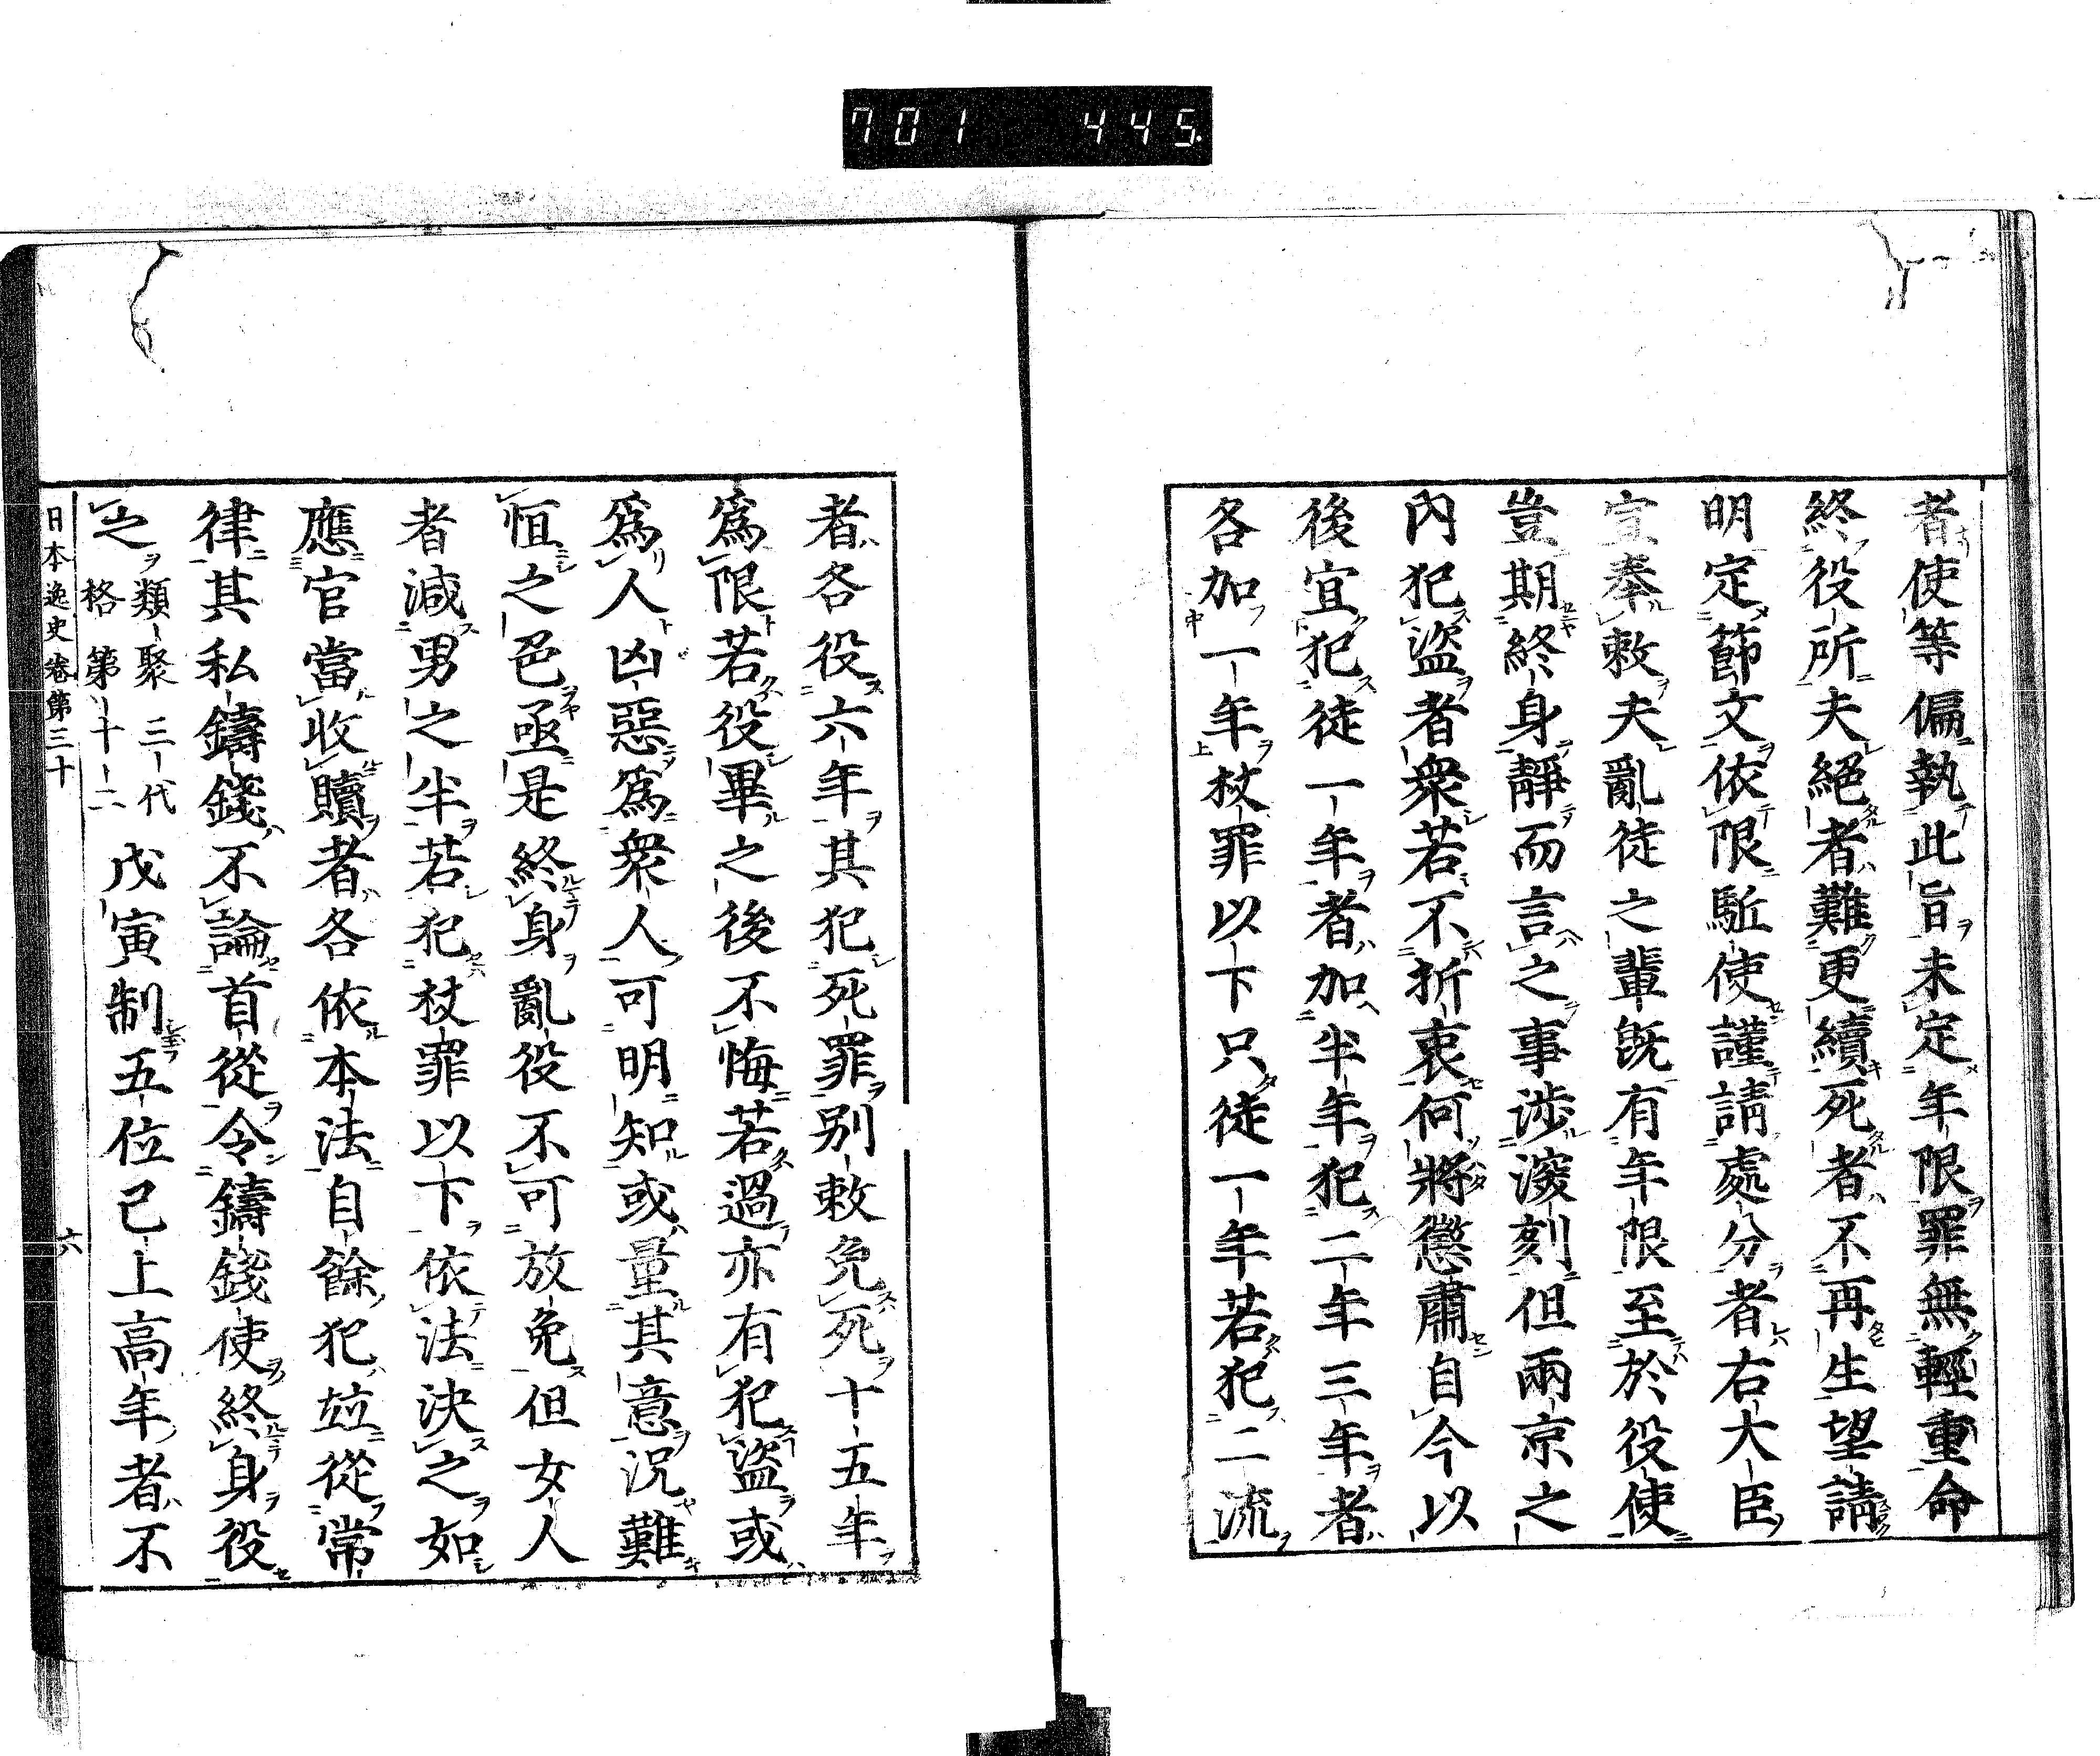 701 445
者使等偏執此旨未定年限罪無輕重命
終役所夫絕者難更續死者不再生望請
明定節文依限駈使謹請處分者右大臣
宣奉敕夫亂徒之輩既有年限至於役使
豈期終身靜而言之事涉深刻但兩京之
內犯盜者衆若不折衷何將懲肅自今以
後宜犯徒一年者加半年犯二年三年者
各加一年杖罪以下只徒一年若犯二流
者各役六年其犯死罪別敕免死十五年
爲限若役畢之後不悔若過亦有犯盜或
爲人凶惡爲衆人可明知或量其意況難
恒之色亟是終身亂役不可放免但女人
者減男之半若犯杖罪以下依法決之如
應官當收贖者各依本法自餘犯竝從常
律其私鑄錢不論首從令鑄錢使終身役
之類聚三代格第十二戊寅制五位已上高年者不
日本逸史卷第三十 六